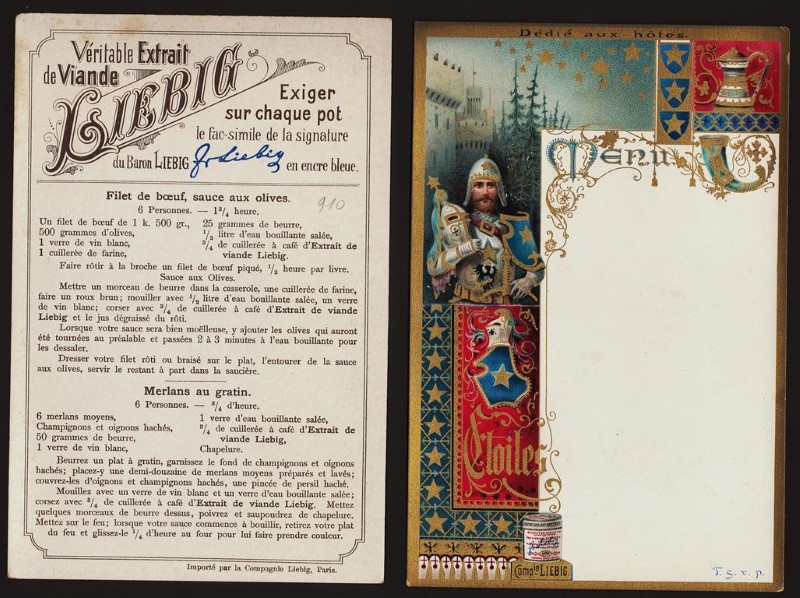 Véritable Extrait
de Viande
LIEBIG
Exiger
sur chaque pot
le fac-simile de la signature
du Baron LIEBIG Jv Liebig en encre bleue.
Filet de bœuf, sauce aux olives.
910
6 Personnes. — 1 3/4 heure.
Un filet de bœuf de 1 k. 500 gr.,
500 grammes d'olives,
1 verre de vin blanc,
1 cuillerée de farine,
25 grammes de beurre,
1/2 litre d'eau bouillante salée,
3/4 de cuillerée à café d'Extrait de
viande Liebig.
Faire rôtir à la broche un filet de bœuf piqué, 1/2 heure par livre.
Sauce aux Olives.
Mettre un morceau de beurre dans la casserole, une cuillerée de farine,
faire un roux brun; mouiller avec 1/2 litre d'eau bouillante salée, un verre
de vin blanc; corser avec 3/4 de cuillerée à café d'Extrait de viande
Liebig et le jus dégraissé du rôti.
Lorsque votre sauce sera bien moëlleuse, y ajouter les olives qui auront
été tournées au préalable et passées 2 à 3 minutes à l'eau bouillante pour
les dessaler.
Dresser votre filet rôti ou braisé sur le plat, l'entourer de la sauce
aux olives, servir le restant à part dans la saucière.
Merlans au gratin.
6 Personnes. — 3/4 d'heure.
6 merlans moyens,
Champignons et oignons hachés,
50 grammes de beurre,
1 verre de vin blanc,
1 verre d'eau bouillante salée,
3/4 de cuillerée à café d'Extrait de
viande Liebig,
Chapelure.
Beurrez un plat à gratin, garnissez le fond de champignons et oignons
hachés; placez-y une demi-douzaine de merlans moyens préparés et lavés;
couvrez-les d'oignons et champignons hachés, une pincée de persil haché.
Mouillez avec un verre de vin blanc et un verre d'eau bouillante salée;
corsez avec 3/4 de cuillerée à café d'Extrait de viande Liebig. Mettez
quelques morceaux de beurre dessus, poivrez et saupoudrez de chapelure.
Mettez sur le feu; lorsque votre sauce commence à bouillir, retirez votre plat
du feu et glissez-le 1/4 d'heure au four pour lui faire prendre couleur.
Importé par la Compagnie Liebig, Paris.
Dédié aux hôtes.
Menu
Etoiles
Compie LIEBIG
T. s. v. p.